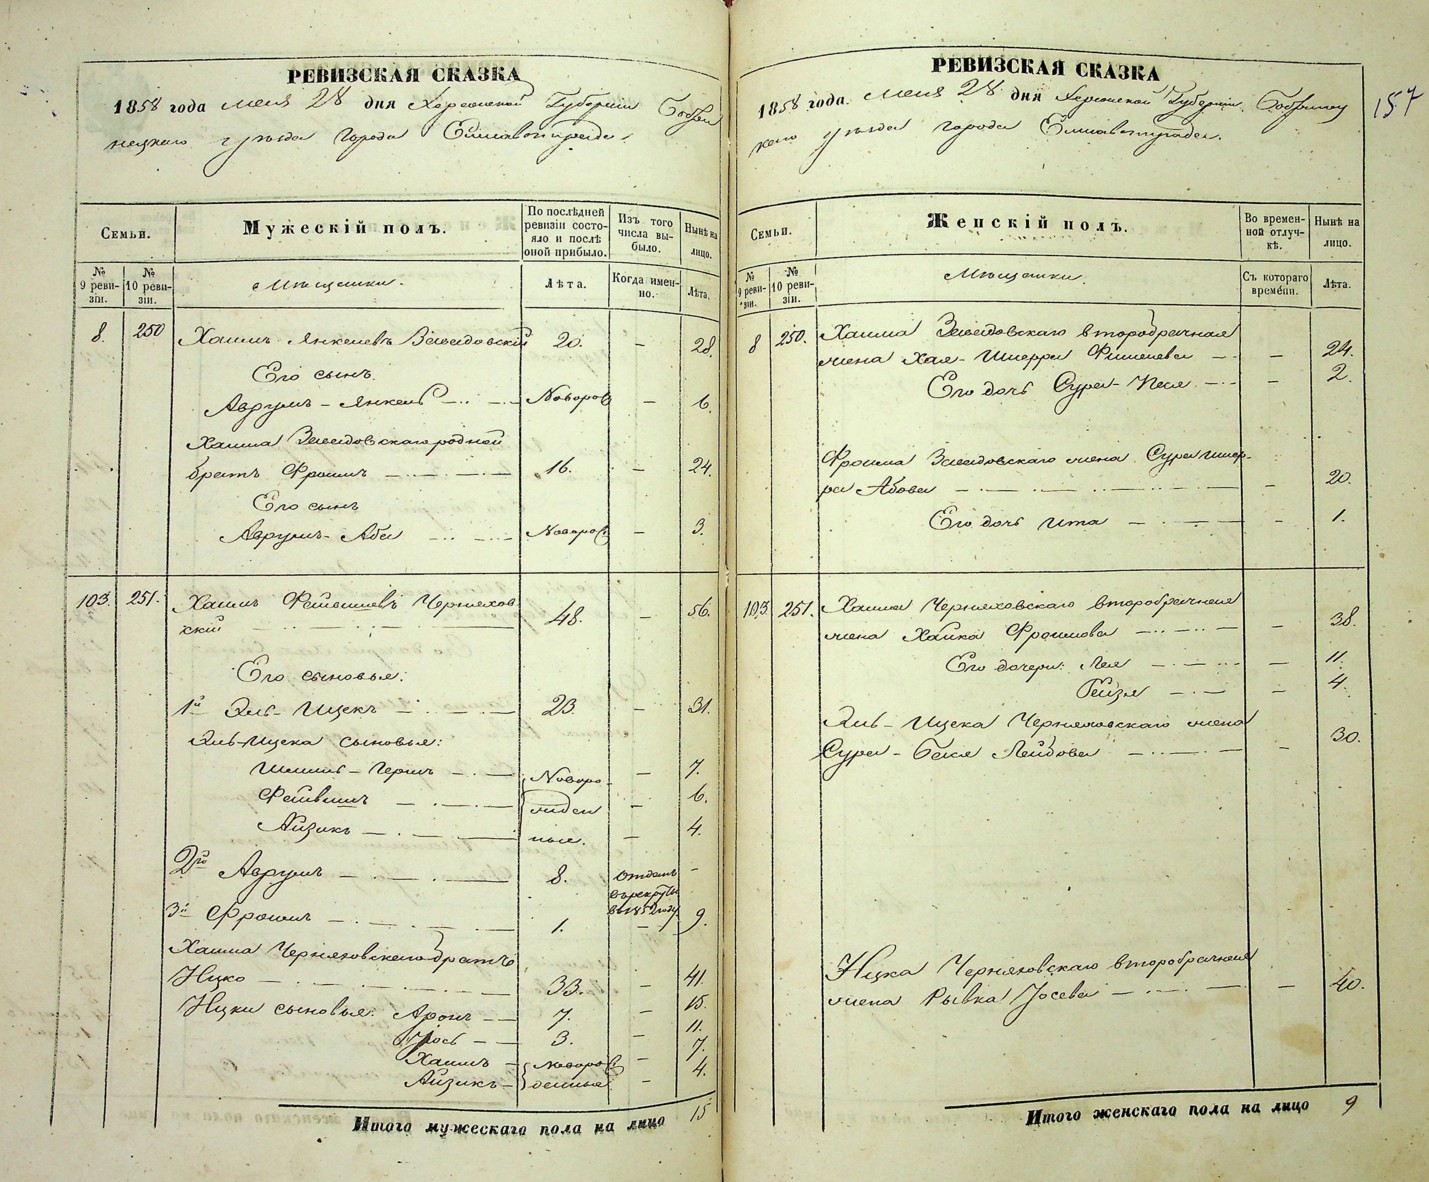 РЕВИЗСКАЯ СКАЗКА
1858 года мая 28 дня Херсонской Губернии Бобри
нецкаго уѣзда города Елисаветграда.
Семьи.
Мужескій полъ.
По послѣдней ревизіи состояло и послѣ оной прибыло.
Изъ того числа выбыло.
Нынѣ на лицо.
№ 9 ревизіи.
№ 10 ревизіи.
Мѣщане.
Лѣта.
Когда именно.
Лѣта.
8. 250 Хаимъ Янкелевъ Завадовскій 20. — 28.
Его сынъ
Аврумъ-Янкель — Новорож — 6.
Хаима Завадовскаго родной
братъ Фроимъ — 16. — 24.
Его сынъ
Аврумъ-Аба — Новорож — 3.
103. 251. Хаимъ Фейвишевъ Черняхов
скій — 48. — 56.
Его сыновья:
1й Эль-Ицекъ — 23. — 31.
Эль-Ицека сыновья:
Герш — Новоро — 7.
Фейвишъ — жден — 6.
Айзикъ — ные. — 4.
2го Аврумъ — 8. отданъ —
въ рекруты
въ 1852 году
3й Фроимъ — 1. — 9.
Хаима Черняховскаго братъ
Ицко — 33. — 41.
Ицки сыновья: Аронъ — 7. — 15.
Іось — 3. — 11.
Хаимъ — новорож — 7.
Айзикъ — денные — 4.
Итого мужескаго пола на лицо 15
РЕВИЗСКАЯ СКАЗКА
1858 года мая 28 дня Херсонской Губернии Бобринец
каго уѣзда города Елисаветграда.
157
Семьи.
Женскій полъ.
Во временной отлучкѣ.
Нынѣ на лицо.
№ 9 ревизіи.
№ 10 ревизіи.
Мѣщанки.
Съ котораго времени.
Лѣта.
8 250. Хаима Завадовскаго второбрачная
жена Хая- Фишелева — — 24.
Его дочь Сура-Песя — — 2.
Фроима Завадовскаго жена Сура
Абова — — 20.
Его дочь Ита — — 1.
103 251. Хаима Черняховскаго второбрачная
жена Хайка Фроимова — — 38.
Его дочери: Лея — — 11.
Рейзя — — 4.
Эль-Ицека Черняховскаго жена
Сура-Бася Лейбова — — 30.
Ицка Черняховскаго второбрачная
жена Рывка Іосева — — 40.
Итого женскаго пола на лицо 9